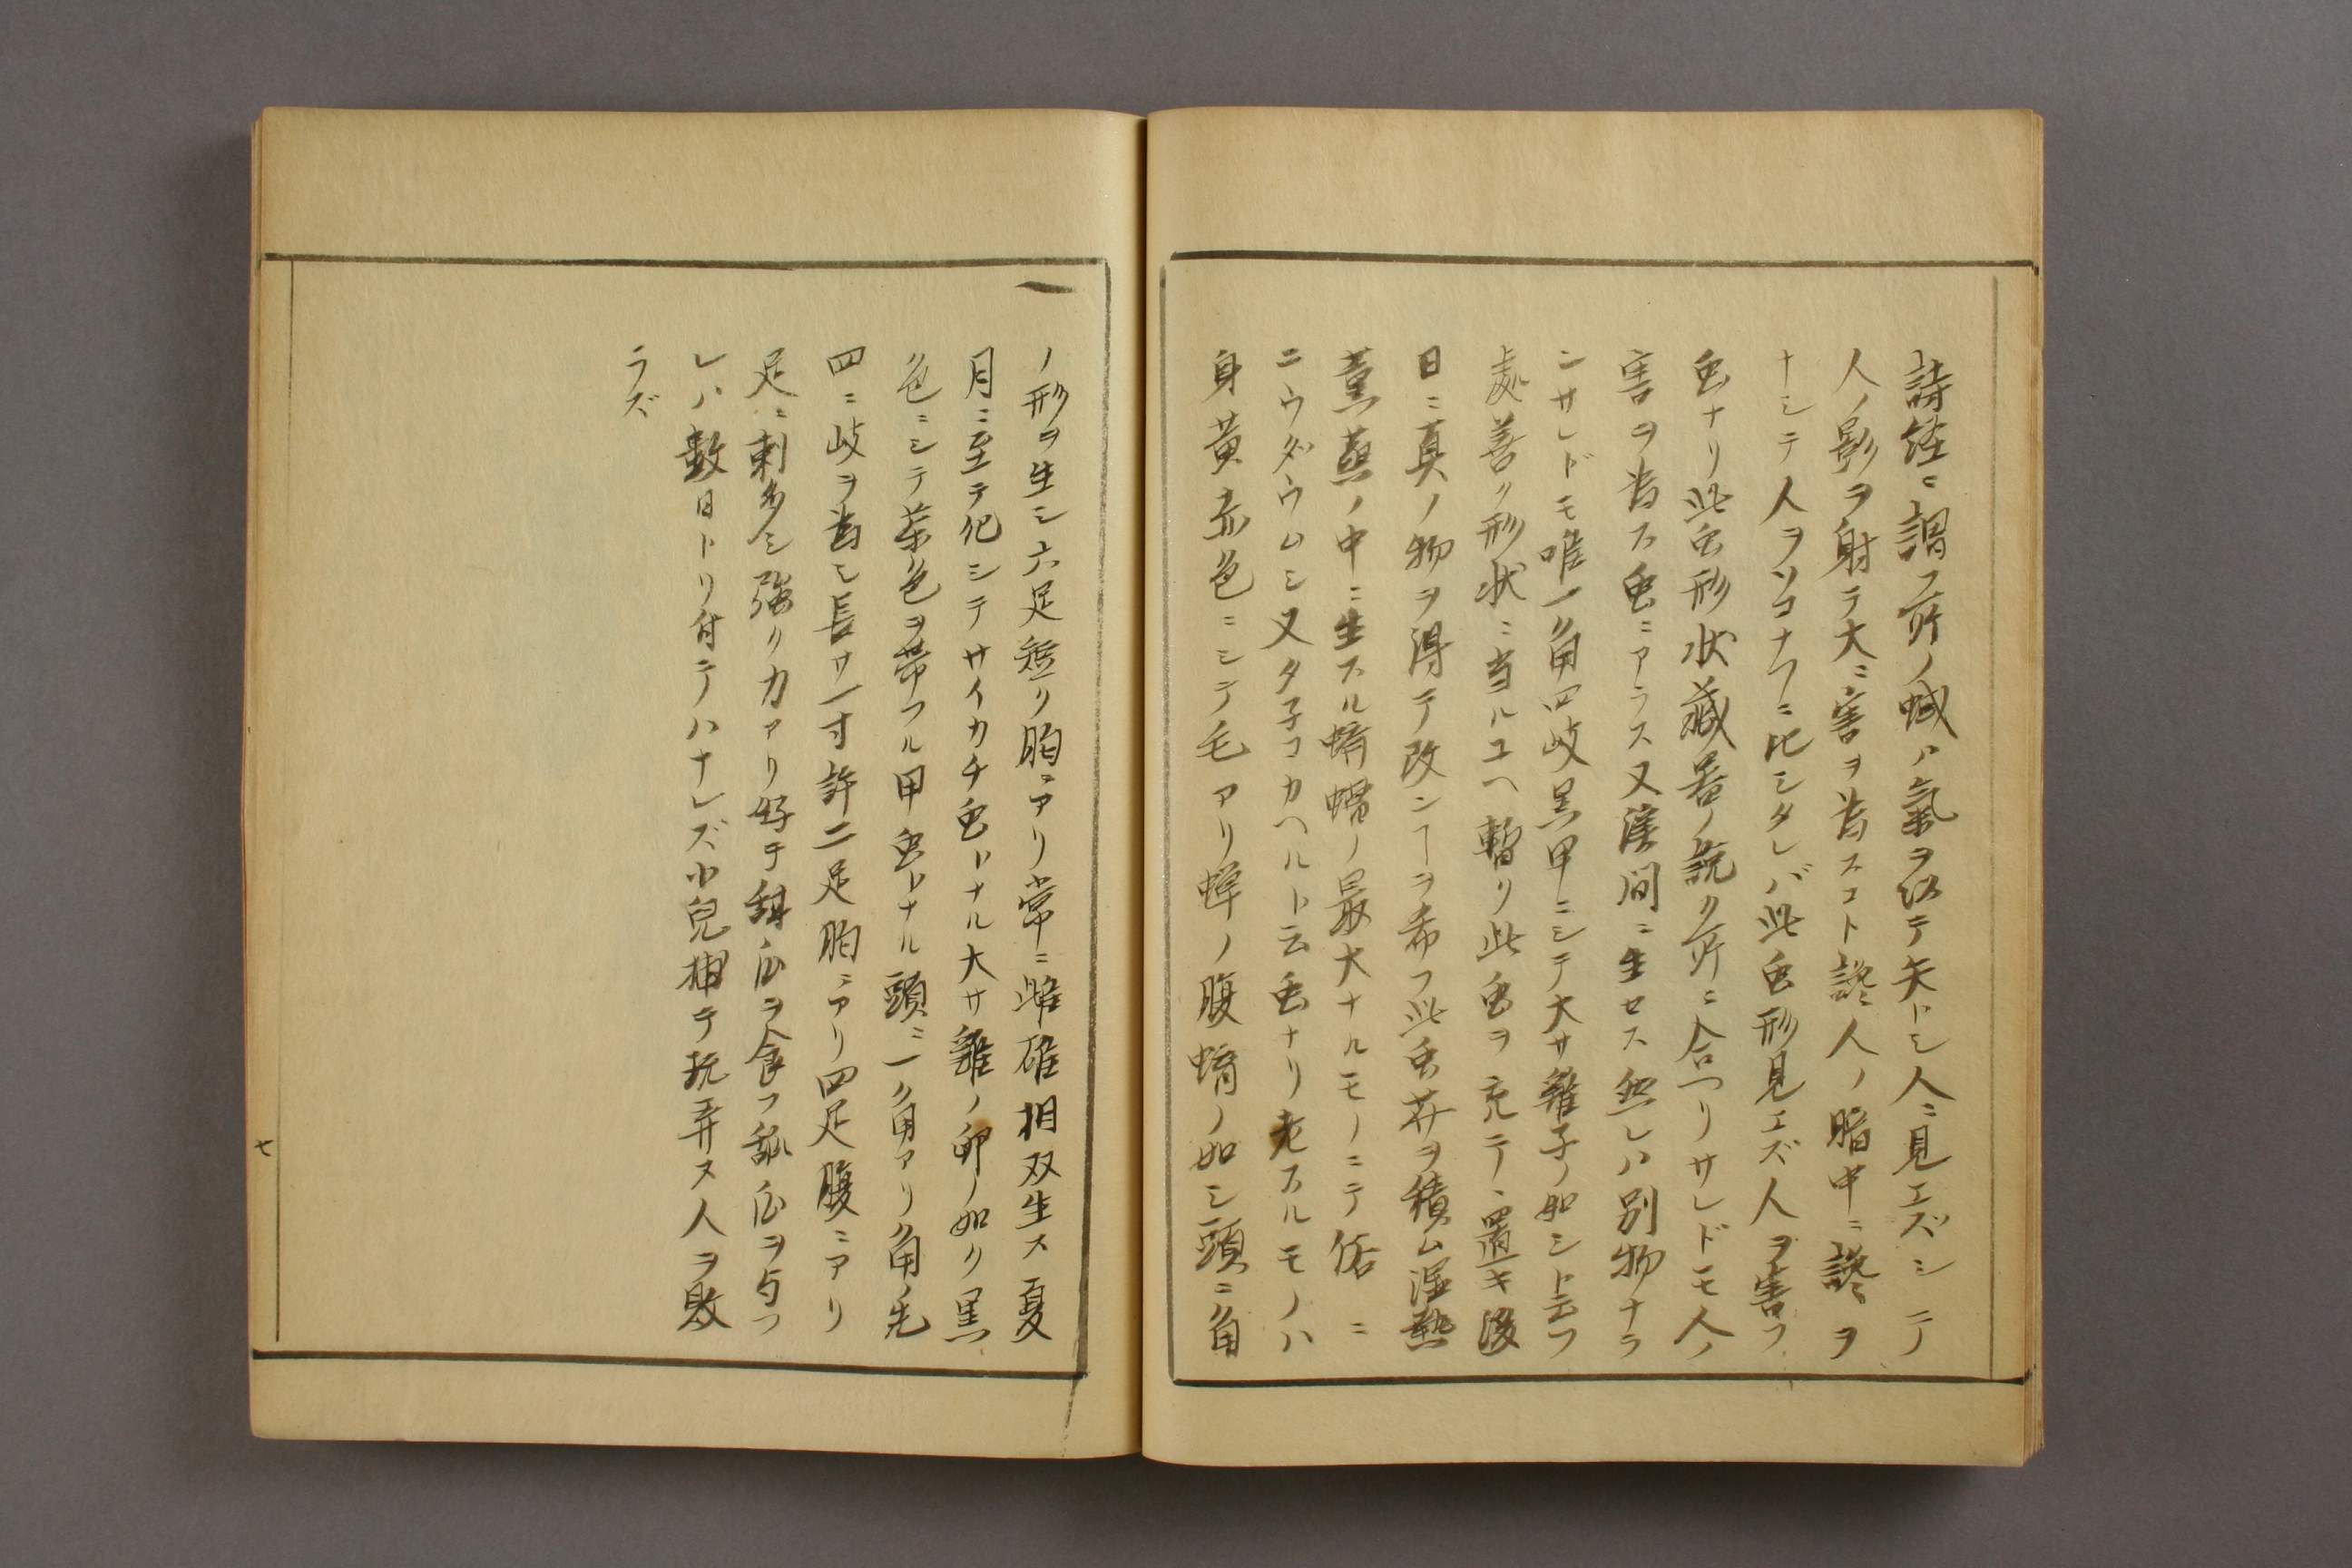 詩経ニ謂フ所ノ蜮ハ氣ヲ以テ矢トシ人ニ見エズシテ
人ノ影ヲ射テ大ニ害ヲ爲スコト讒人ノ暗中ニ讒ヲ
ナシテ人ヲソコナフニ比シタレバ此虫形見エズ人ヲ害フ
虫ナリ此虫形状蔵器ノ説ク所ニ合ヘリサレドモ人ノ
害ヲ爲ス虫ニアラス又渓間ニ生セス然レハ別物ナラ
ンサレドモ唯一角四岐黒甲ニシテ大サ雞子ノ如シト云フ
処善ク形状ニ当ルユヘ暫ク此虫ヲ充テ置キ後
日ニ真ノ物ヲ得テ改ンヿヲ希フ此虫芥ヲ積ム湿熱
薫蒸ノ中ニ生スル蠐螬ノ最大ナルモノニテ俗ニ
ニウダウムシ又タ子コカヘルト云虫ナリ老スルモノハ
身黄赤色ニシテ毛アリ蝉ノ腹蠐ノ如シ頭ニ角
ノ形ヲ生シ六足短ク胸ニアリ常ニ雌雄相双生ス夏
月ニ至テ化シテサイカチ虫トナル大サ雞ノ卵ノ如ク黒
色ニシテ茶色ヲ帯フル甲虫トナル頭ニ一角アリ角ノ先
四ニ岐ヲ爲シ長サ一寸許二足胸ニアリ四足腹ニアリ
足ニ刺多シ強ク力アリ好テ甜瓜ヲ食フ甜瓜ヲ与フ
レハ數日トリ付テハナレズ小兒捕テ玩弄ス人ヲ敗
ラズ
七